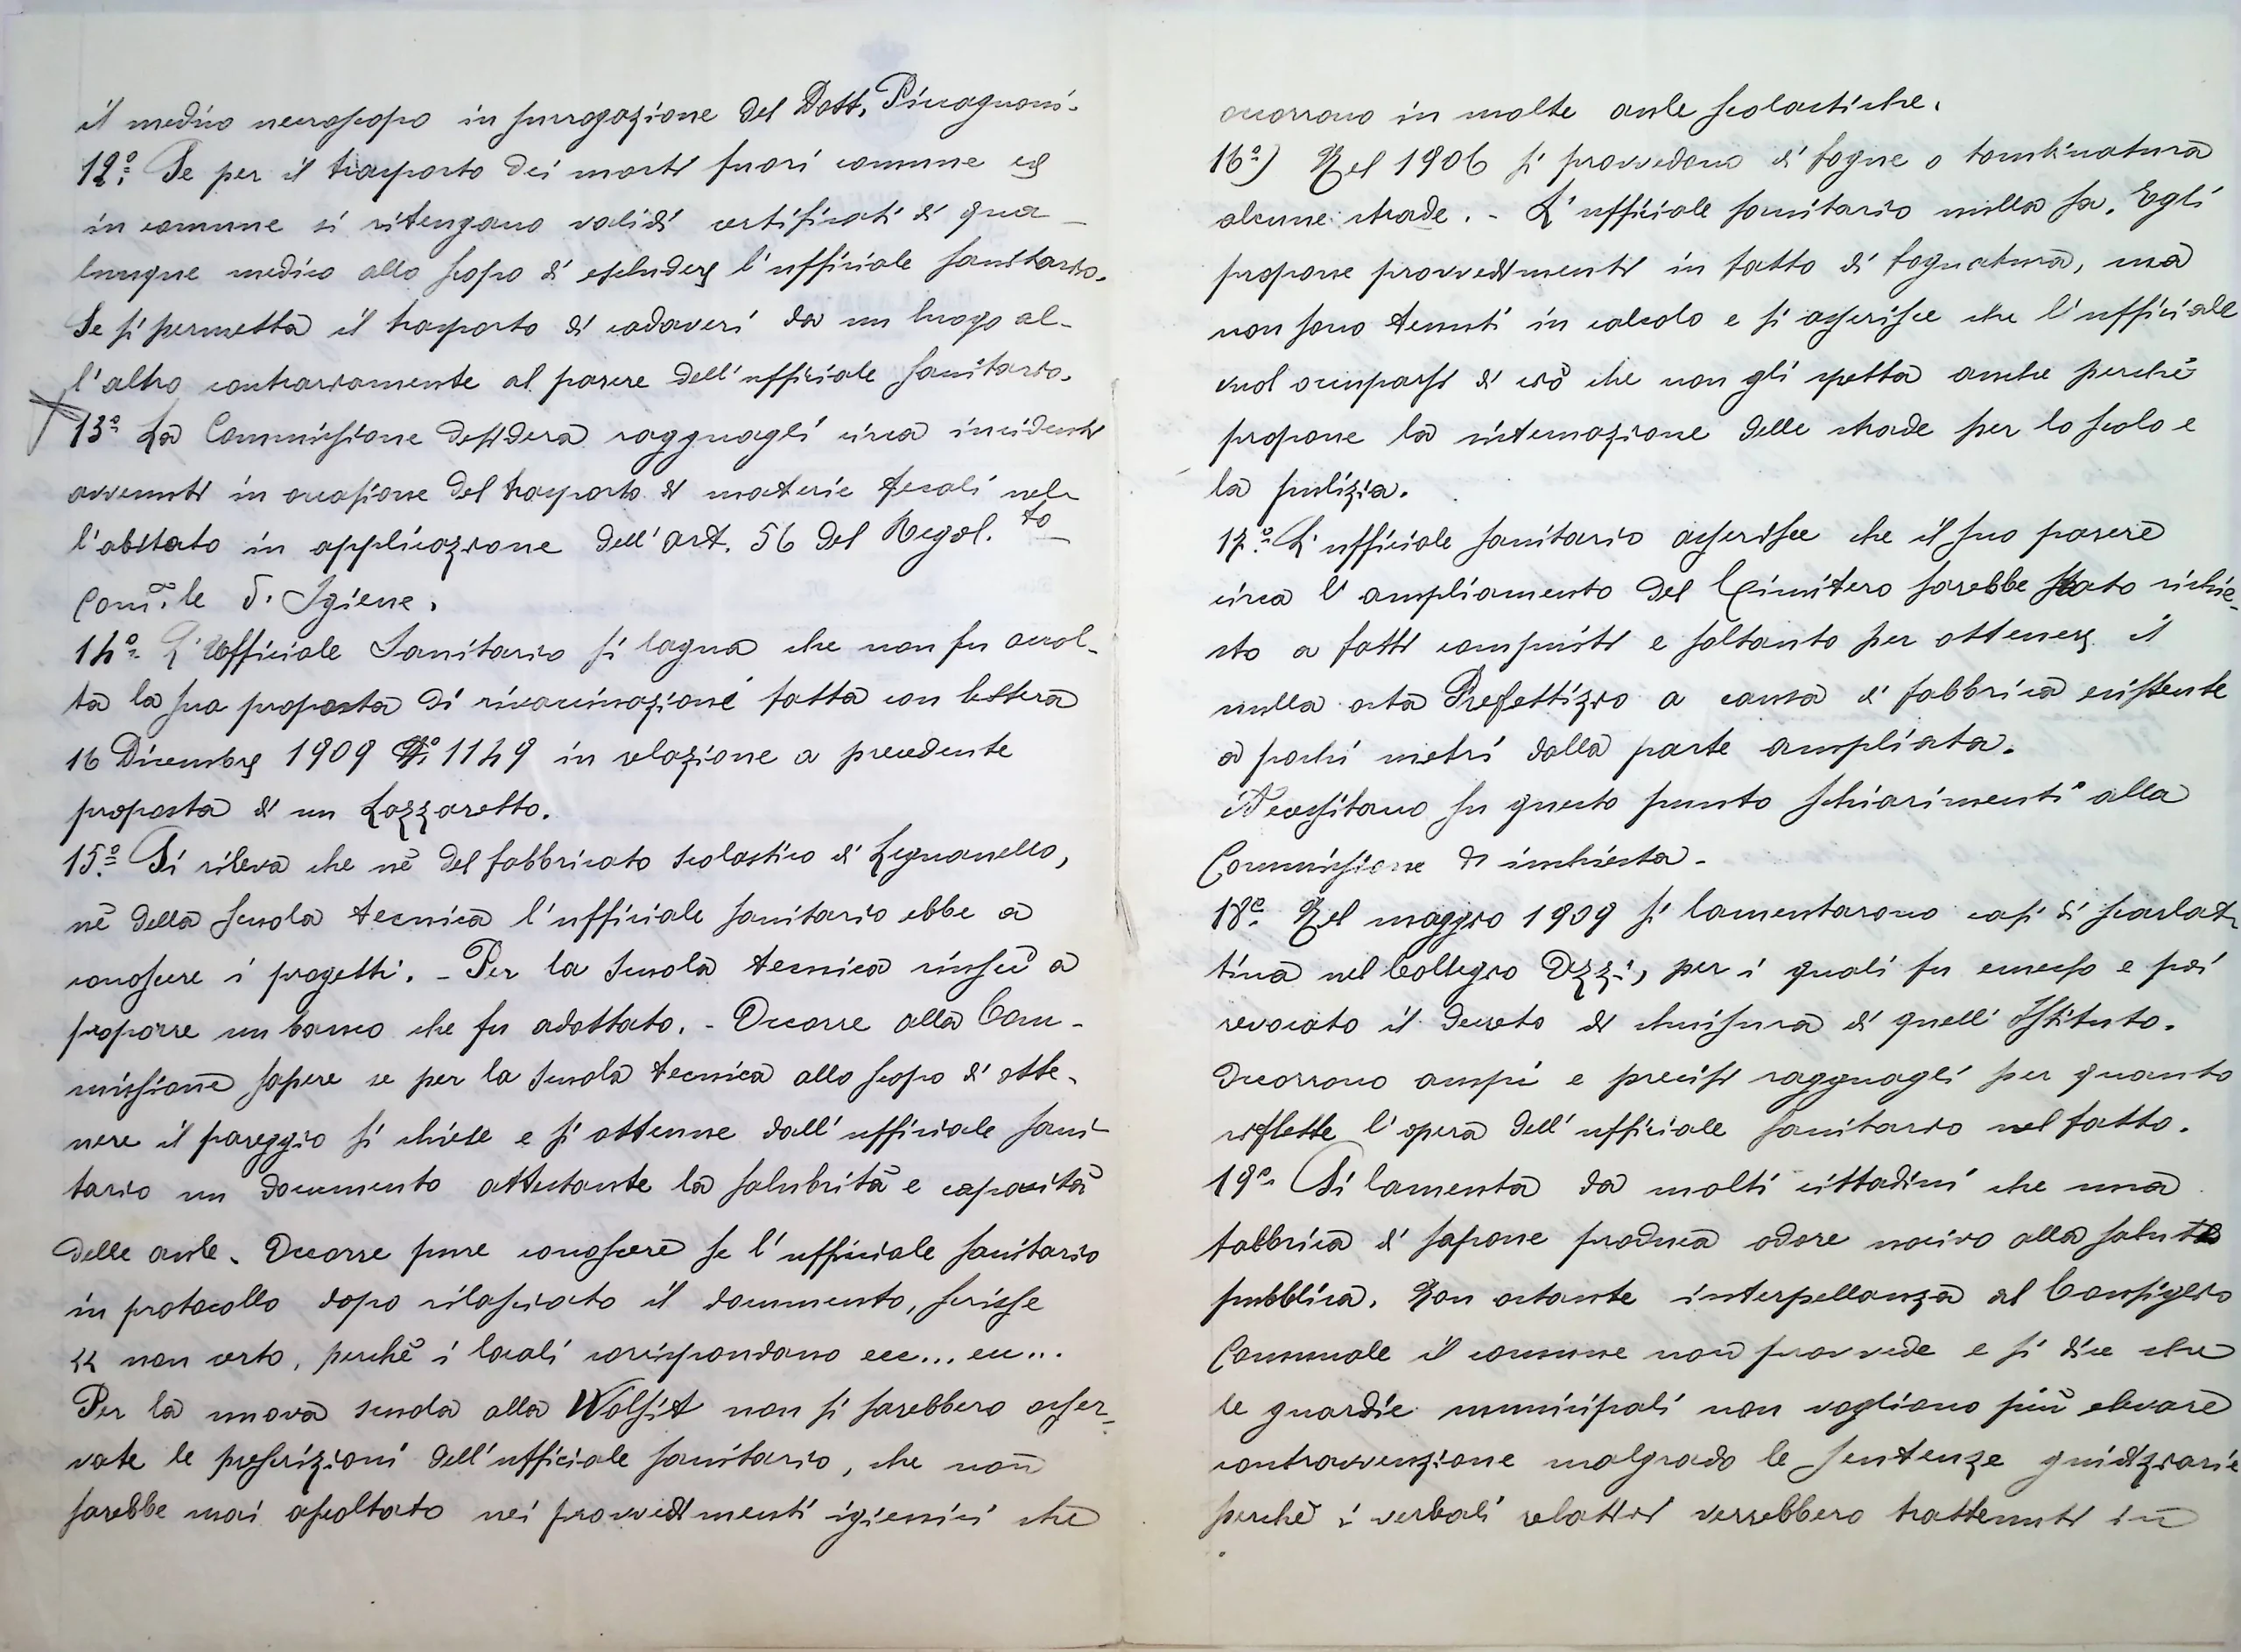 il medico necroscopo in surrogazione del Dott. Piccagnoni.
12.º Se per il trasporto dei morti fuori comune ed
in comune si ritengano validi certificati di qua
lunque medico allo scopo di escludere l'ufficiale sanitario.
Se si permetta il trasporto di cadaveri da un luogo al-
l'altro contrariamente al parere dell'ufficiale sanitario.
13º La Commissione desidera ragguagli circa incidenti
avvenuti in occasione del trasporto di materie fecali nel-
l'abitato in applicazione dell'art. 56 del Regol.to
Com.le d'Igiene.
14º L'Ufficiale Sanitario si lagna che non fu accol-
ta la sua proposta di rivaccinazione fatta con lettera
16 Dicembre 1909 Nº 1149 in relazione a precedente
proposta di un Lazzaretto.
15.º Si rileva che nè del fabbricato scolastico di Legnanello,
nè della scuola tecnica l'ufficiale sanitario ebbe a
conoscere i progetti. - Per la scuola tecnica riuscì a
proporre un banco che fu adottato. - Occorre alla Com-
missione sapere se per la scuola tecnica allo scopo di otte-
nere il pareggio si chiese e si ottenne dall'ufficiale sani-
tario un documento attestante la salubrità e capacità
delle aule. Occorre pure conoscere se l'ufficiale sanitario
in protocollo dopo rilasciato il documento, scrisse
« non certo, perchè i locali corrispondano ecc... ecc...
Per la nuova scuola alla Wolsit non si sarebbero osser-
vate le prescrizioni dell'ufficiale sanitario, che non
sarebbe mai ascoltato nei provvedimenti igienici che
occorrono in molte aule scolastiche.
16º) Nel 1906 si provvedono di fogne o tombinatura
alcune strade. - L'ufficiale sanitario nulla sa. Egli
propone provvedimenti in fatto di fognatura, ma
non sono tenuti in calcolo e si asserisce che l'ufficiale
vuol occuparsi di ciò che non gli spetta anche perchè
propone la sistemazione delle strade per lo scolo e
la pulizia.
17.º L'ufficiale sanitario asserisce che il suo parere
circa l'ampliamento del Cimitero sarebbe stato richie-
sto a fatti compiuti e soltanto per ottenere il
nulla osta Prefettizio a causa di fabbrica esistente
a pochi metri dalla parte ampliata.
Necessitano su questo punto schiarimenti alla
Commissione di inchiesta.
18º Nel maggio 1909 si lamentarono casi di scarlat-
tina nel Collegio Ozzi, per i quali fu emesso e poi
revocato il decreto di chiusura di quell'Istituto.
Occorrono ampi e precisi ragguagli per quanto
riflette l'opera dell'ufficiale sanitario nel fatto.
19º Si lamenta da molti cittadini che una
fabbrica di sapone produca odore nocivo alla salute
pubblica. Non ostante interpellanza al Consiglio
Comunale il comune non provvede e si dice che
le guardie municipali non vogliono più elevare
contravvenzione malgrado le sentenze giudiziarie
perchè i verbali relativi verrebbero trattenuti in